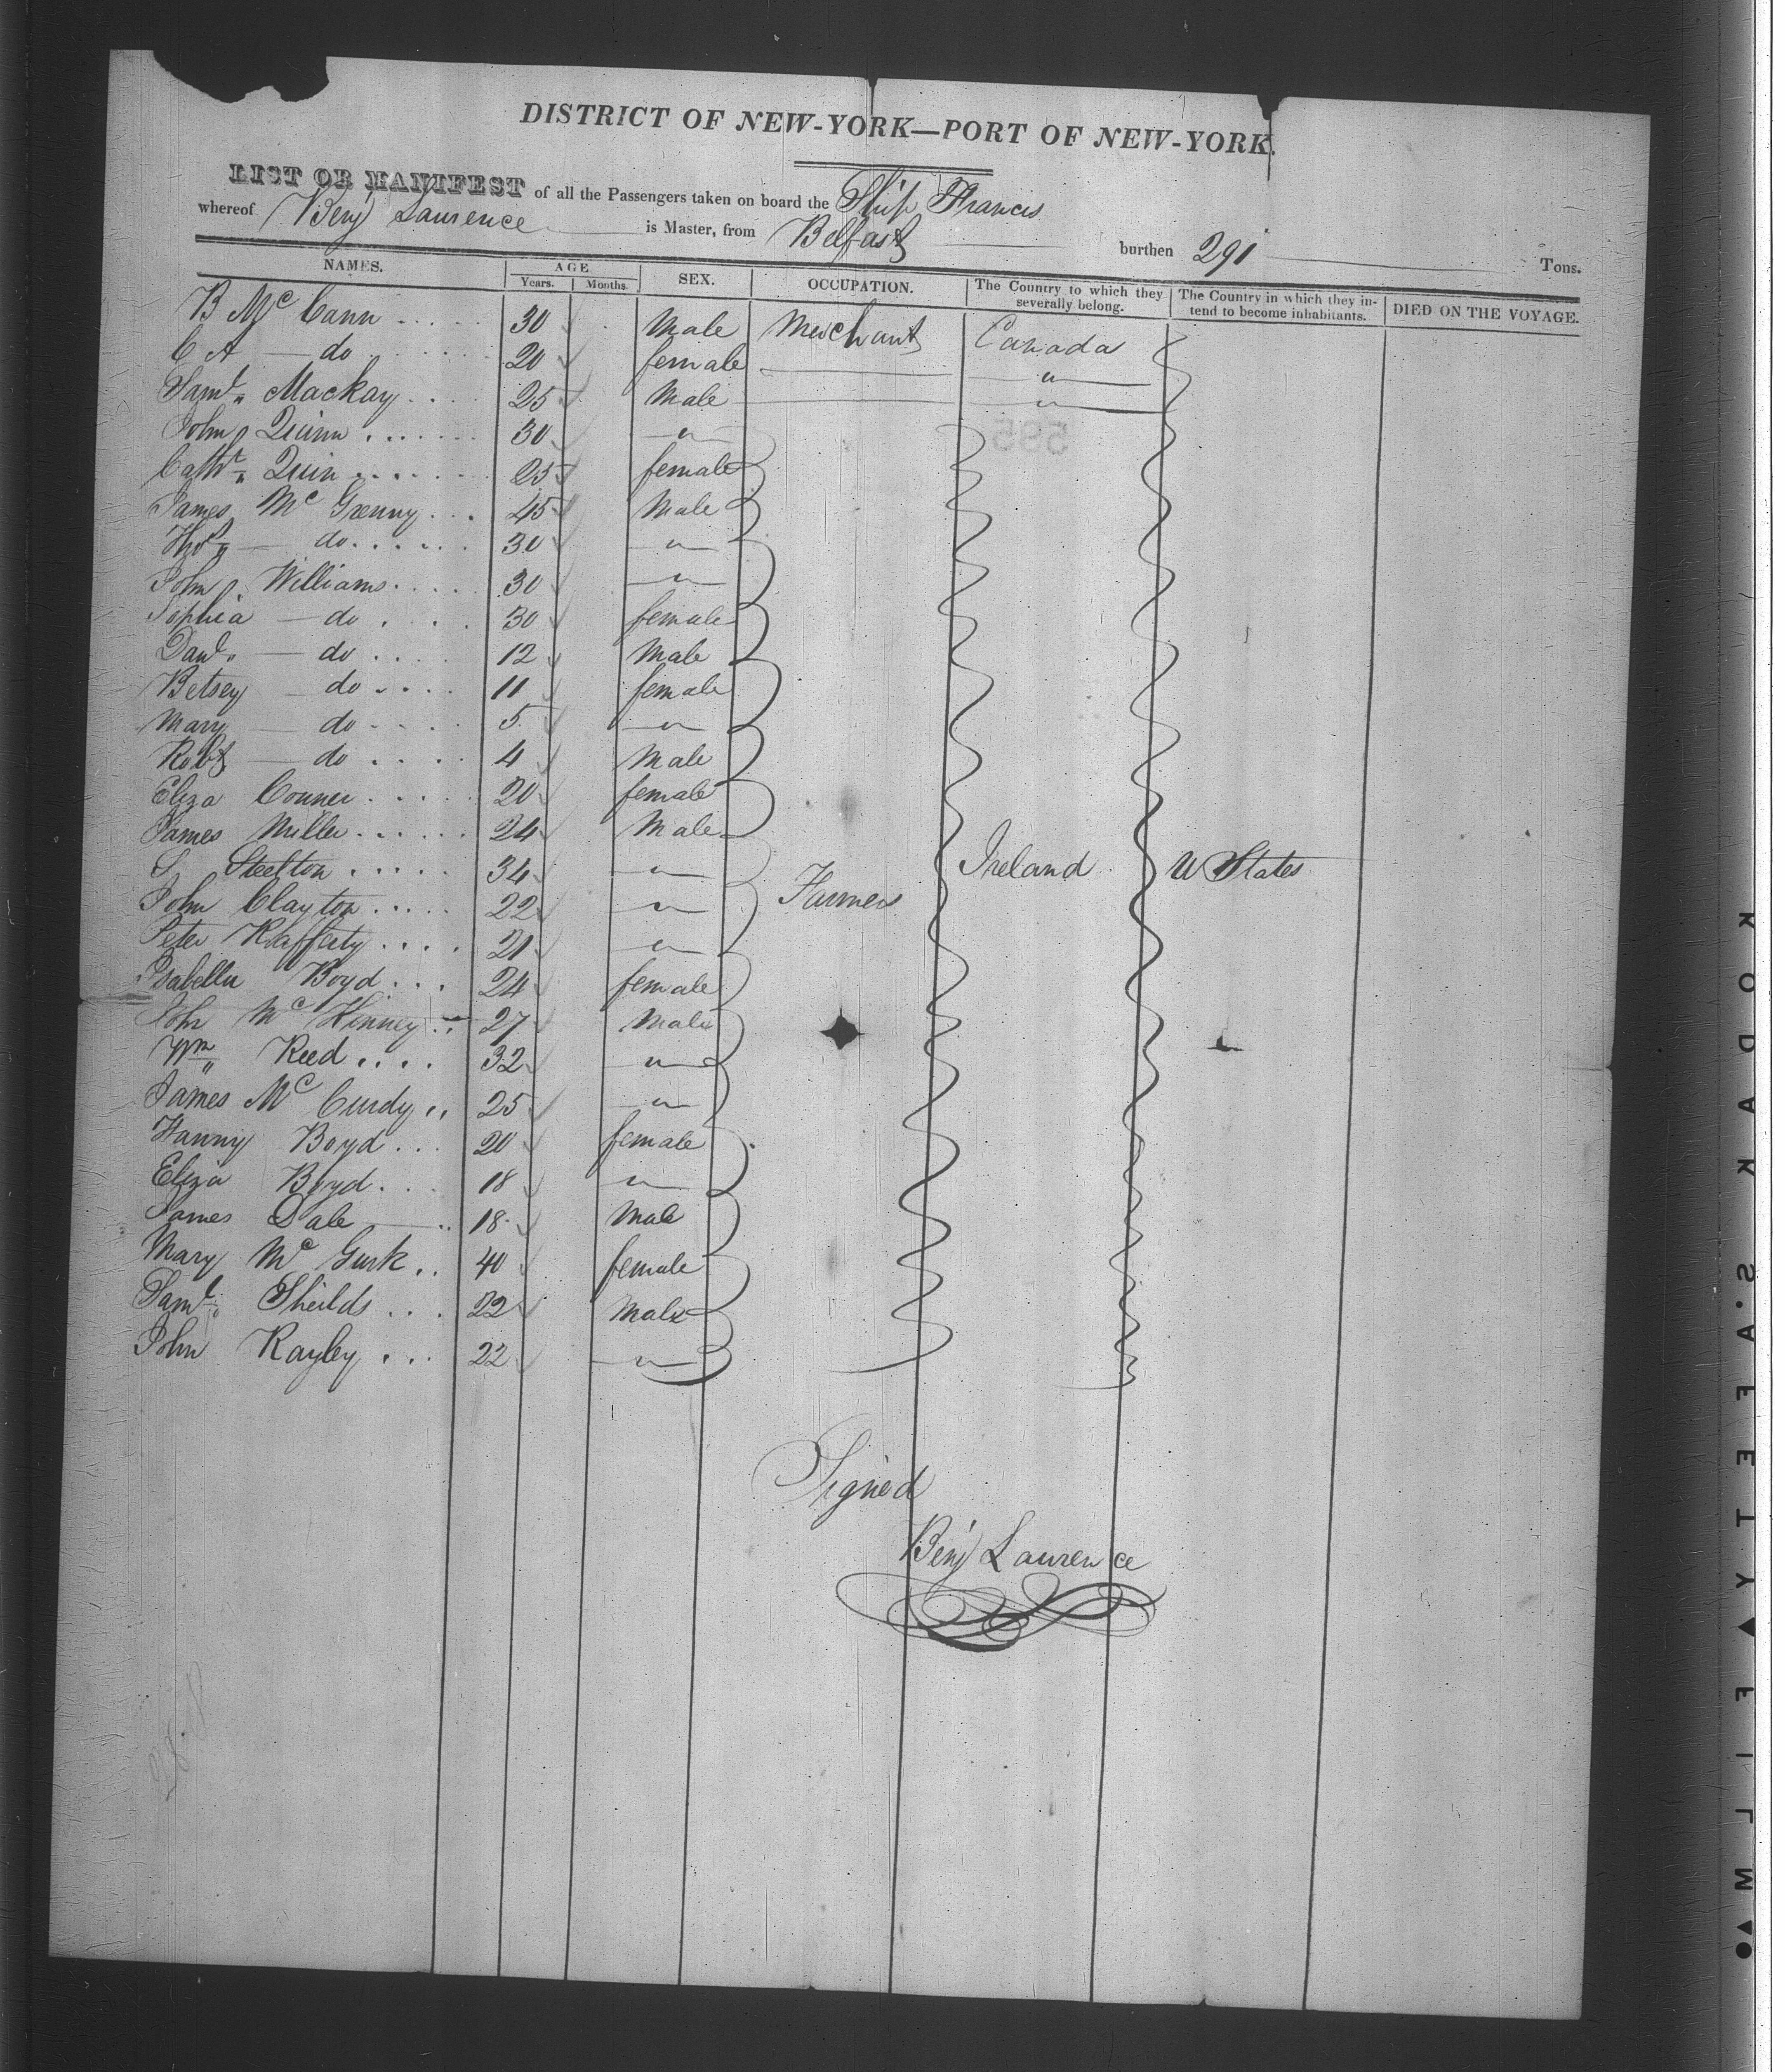 DISTRICT OF NEW-YORK—PORT OF NEW-YORK.
LIST OR MANIFEST of all the Passengers taken on board the Ship Francis
whereof Benj Laurence is Master, from Belfast burthen 291 Tons.
NAMES. AGE SEX. OCCUPATION. The Country to which they severally belong. The Country in which they intend to become inhabitants. DIED ON THE VOYAGE.
Years. Months.
B McCann 30 Male Merchant Canada
C A — do 20 female — " —
Saml Mackay 25 Male — " —
John Quinn 30 "
Cathr Quin 25 female
James McGrenny 45 Male
Thos — do 30 "
John Williams 30 "
Sophia — do 30 female
Danl — do 12 Male
Betsey — do 11 female
Mary — do 5 "
Robt — do 4 Male
Eliza Conner 20 female
James Miller 24 Male
S Steelton 34 " Farmers Ireland U States
John Clayton 22 "
Peter Rafferty 21 "
Isabella Boyd 24 female
John McKinney 27 Male
Wm Reed 32 "
James McCurdy 25 "
Fanny Boyd 20 female
Eliza Boyd 18 "
James Dale 18 Male
Mary McGurk 40 female
Saml Sheilds 22 Male
John Rayley 22 "
Signed
Benj Laurence
585
KODAK SAFETY FILM